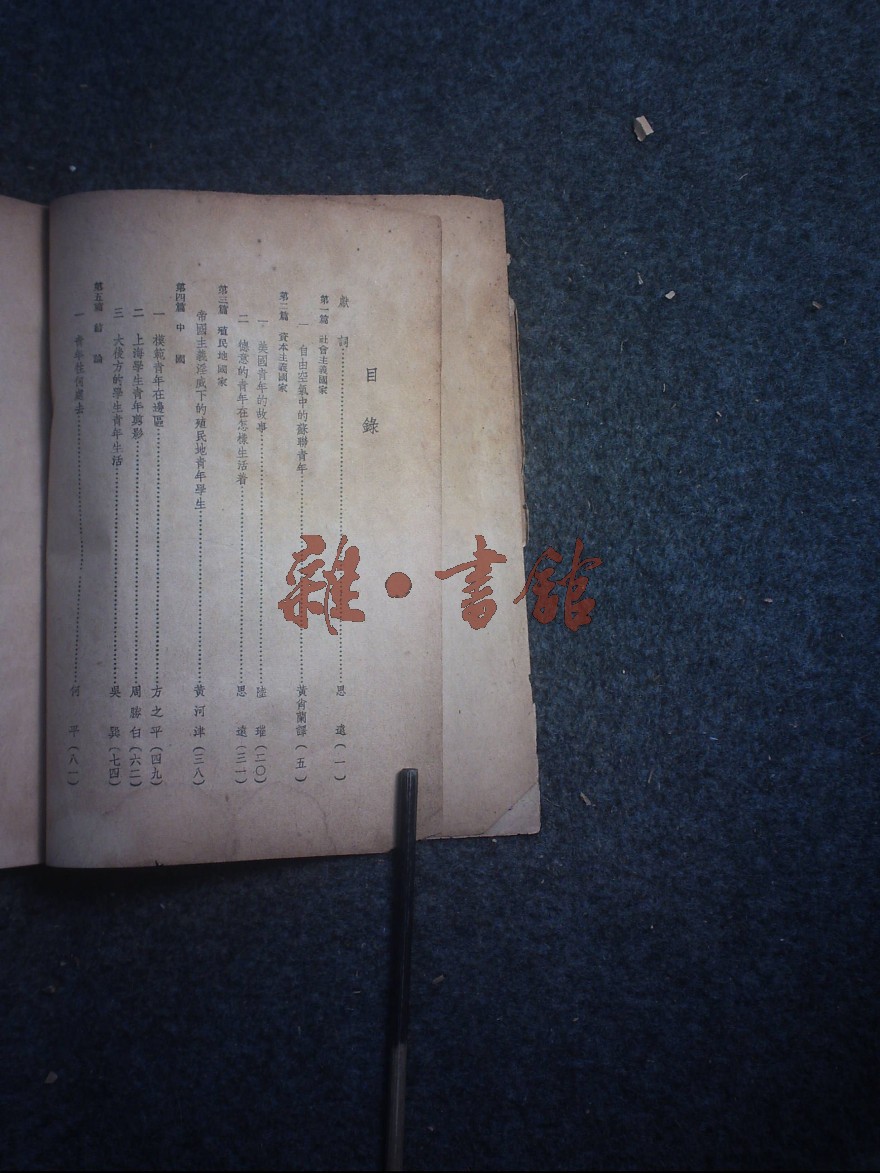 目錄
獻詞……思遠(一)
第一篇 社會主義國家
一 自由空氣中的蘇聯青年……黃肖蘭譯(五)
第二篇 資本主義國家
一 英國青年的故事……陸璀(二〇)
二 德意的青年在怎樣生活着……思遠(三一)
第三篇 殖民地國家
帝國主義淫威下的殖民地青年學生……黃河津(三八)
第四篇 中國
一 模範青年在邊區……方之平(四九)
二 上海學生青年剪影……周勝白(六二)
三 大後方的學生青年生活……吳 (七四)
第五篇 結論
一 青年往何處去……何平(八一)
雜·書館